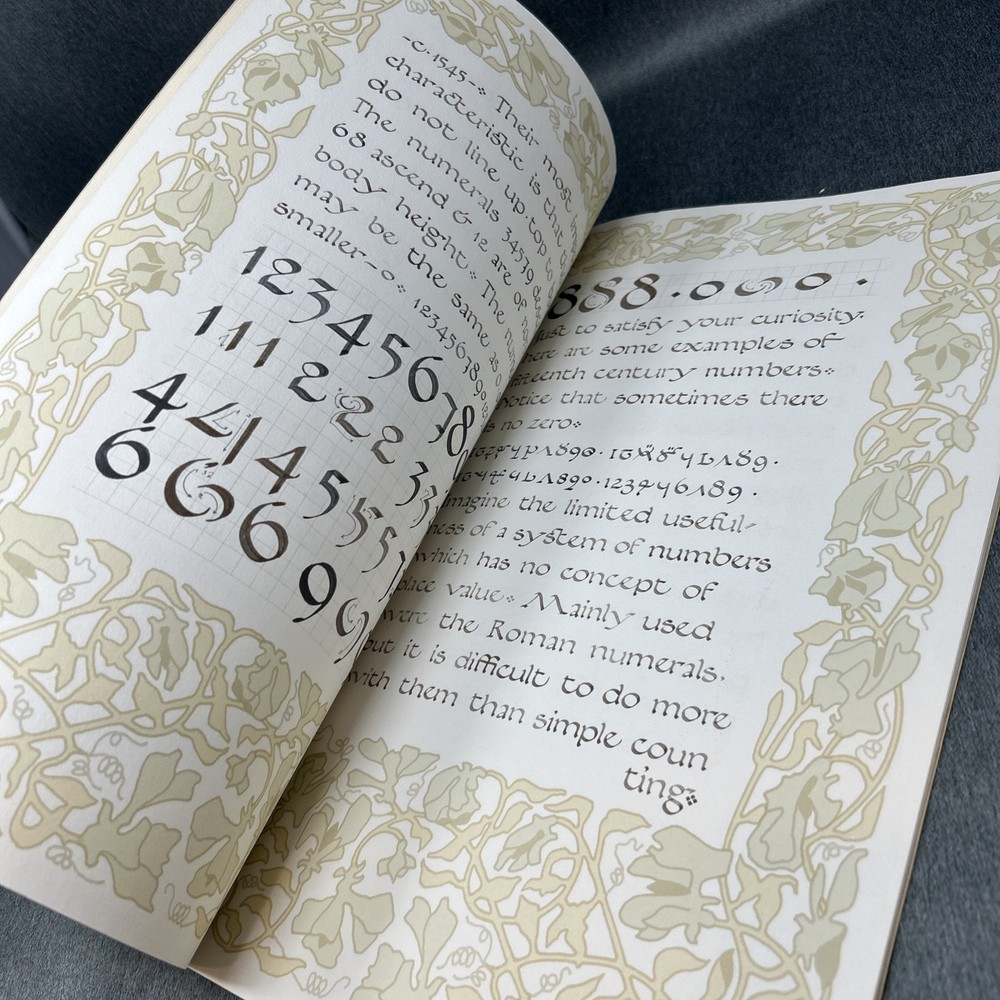 -c.1545- Their most
characteristic is that
do not line up, top to
The numerals 34579
68 ascend & 12 are of
body height. The
may be the same as
smaller - o 1234567890
12345678
111 222 33
444 555
666 99
888.000.
just to satisfy your curiosity,
here are some examples of
fifteenth century numbers
Notice that sometimes there
is no zero
imagine the limited useful-
ness of a system of numbers
which has no concept of
place value. Mainly used
were the Roman numerals,
but it is difficult to do more
with them than simple coun
ting